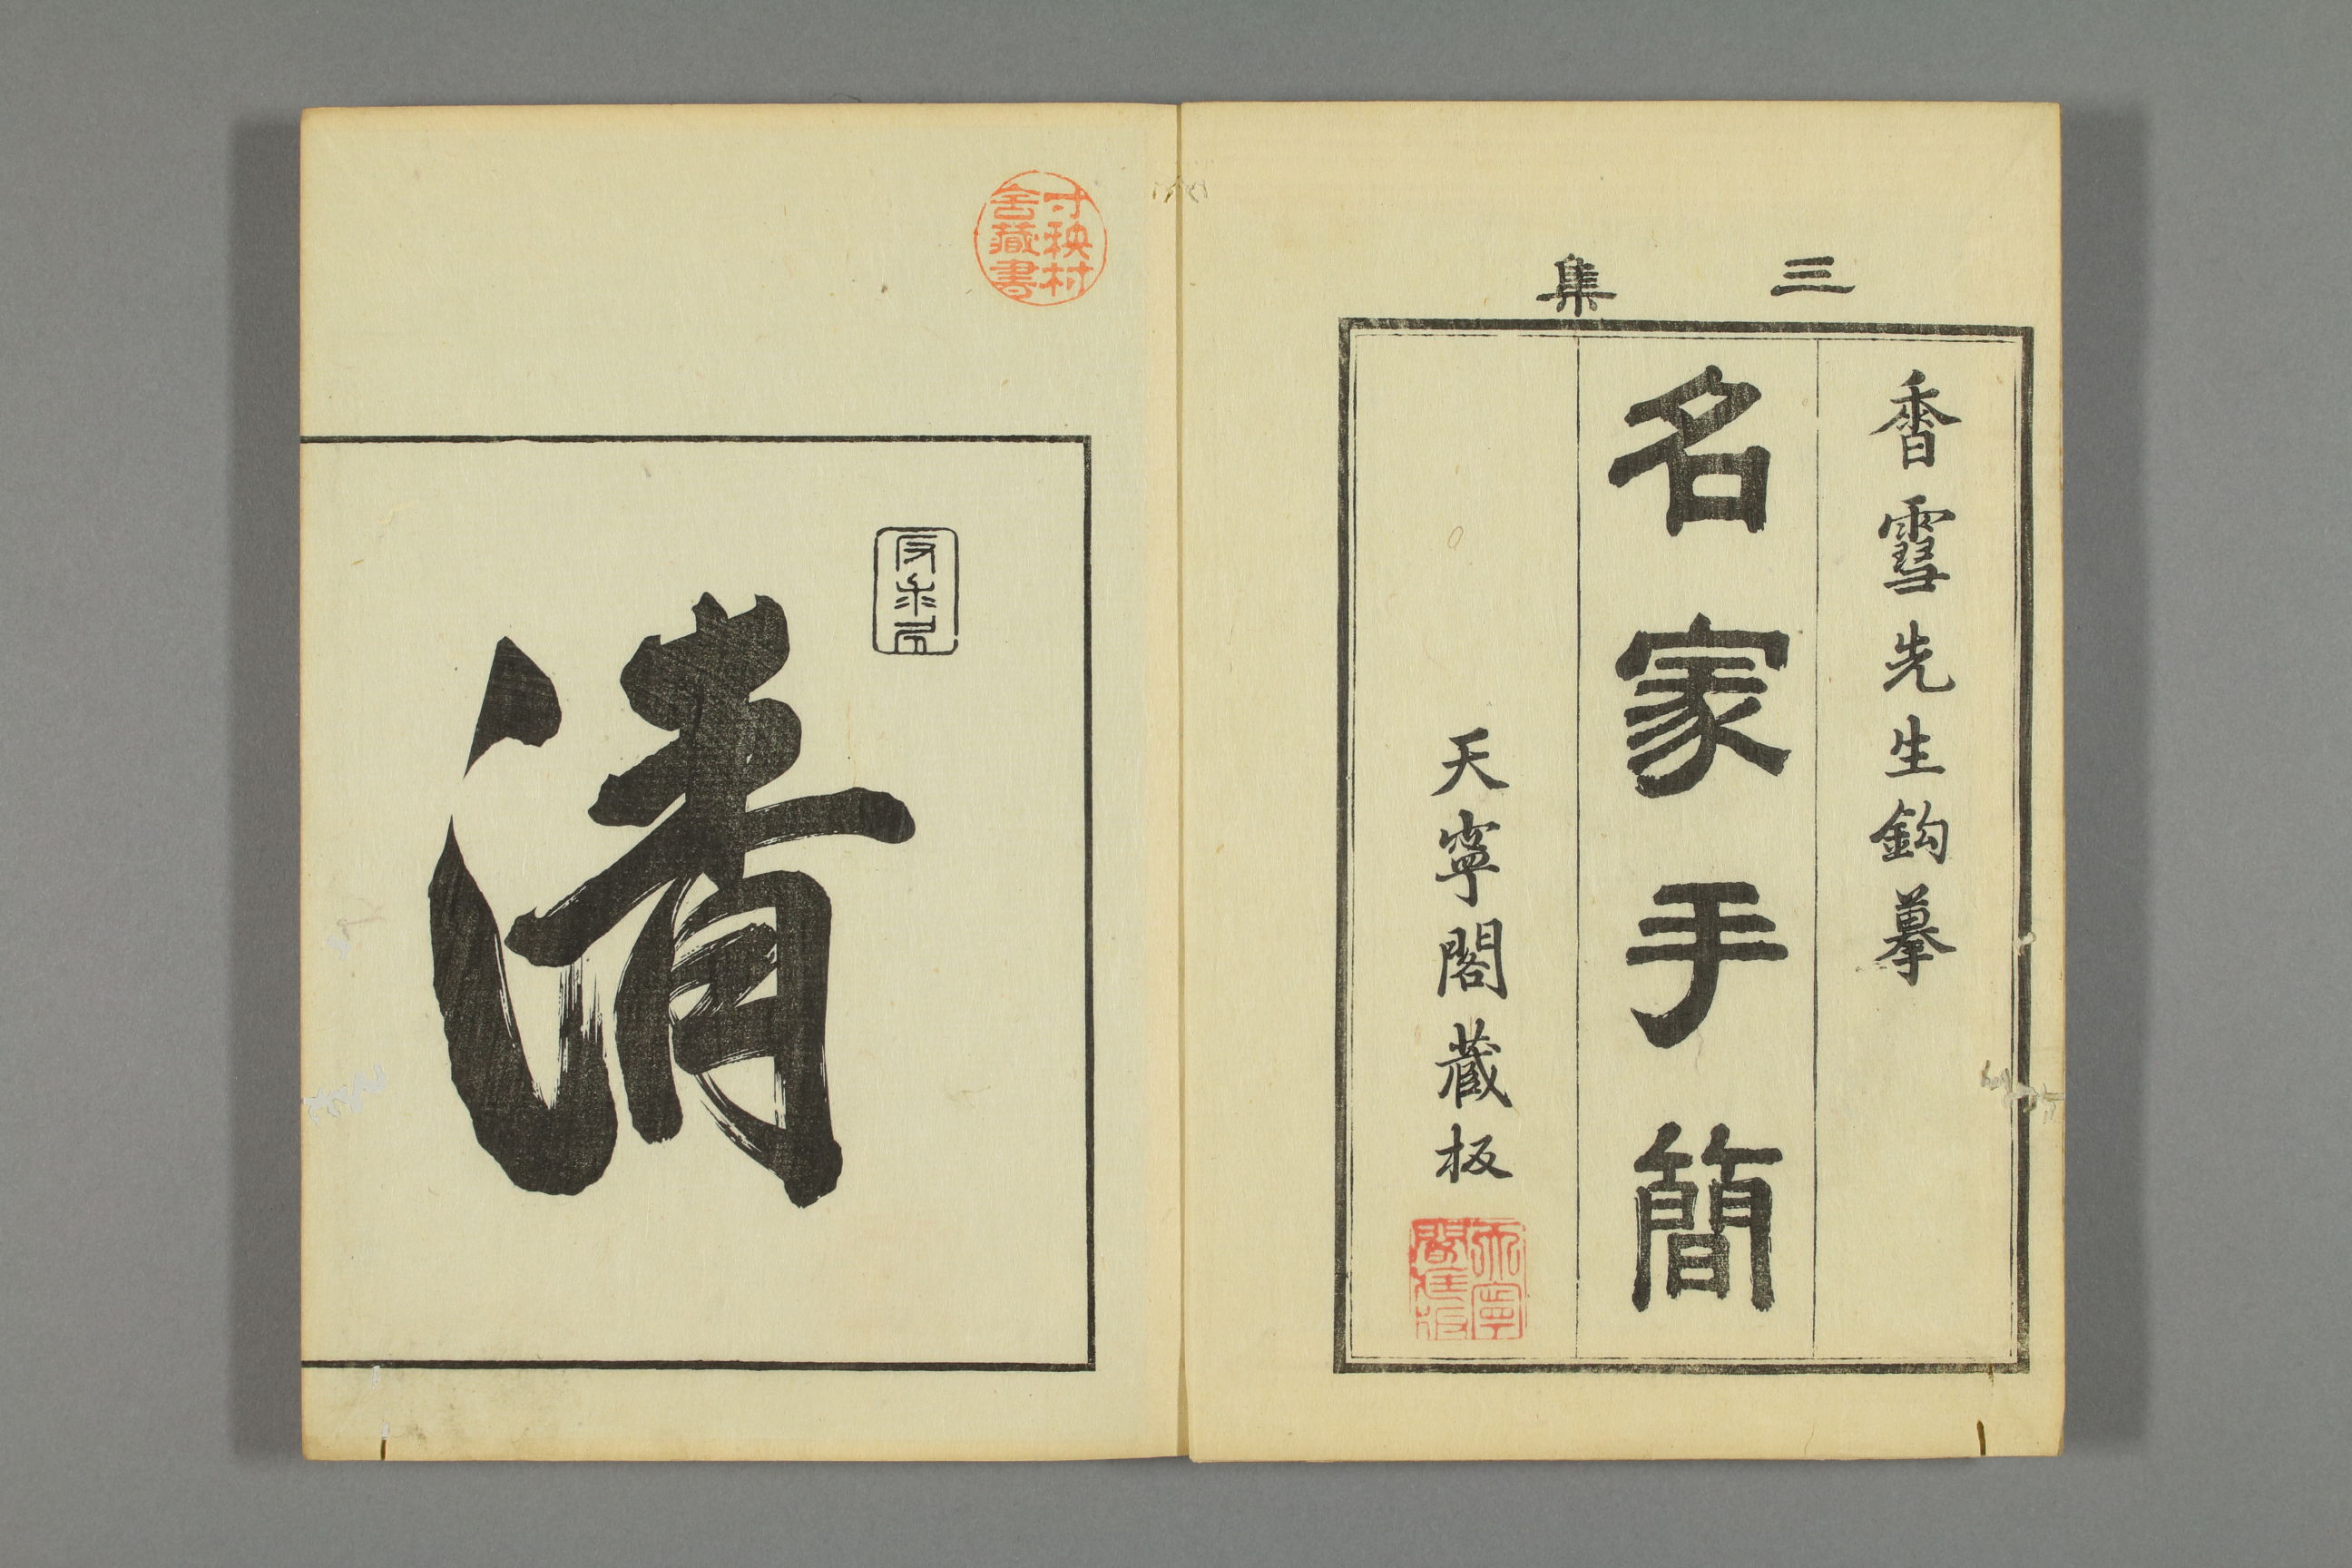 三集
香雪先生鈎摹
名家手簡
天寧閣藏板
天寧
閣藏板
寸秧村
舍藏書
清